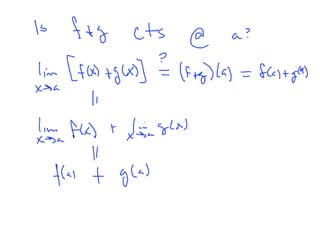 Is f+g cts @ a?
lim x→a [f(x) + g(x)] ?= (f+g)(a) = f(a) + g(a)
||
lim x→a f(x) + lim x→a g(x)
||
f(a) + g(a)